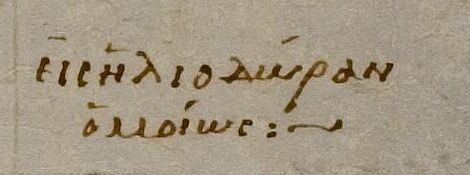 εἰς ἡλιοδώραν
ὁμοίως:~